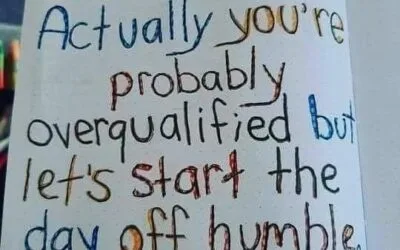 Actually you're
probably
overqualified but
let's start the
day off humble.